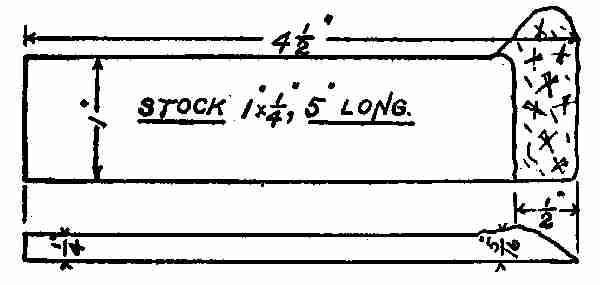 4 1/2"
1"
STOCK 1"×1/4", 5" LONG.
1/2"
1/4"
5/16"